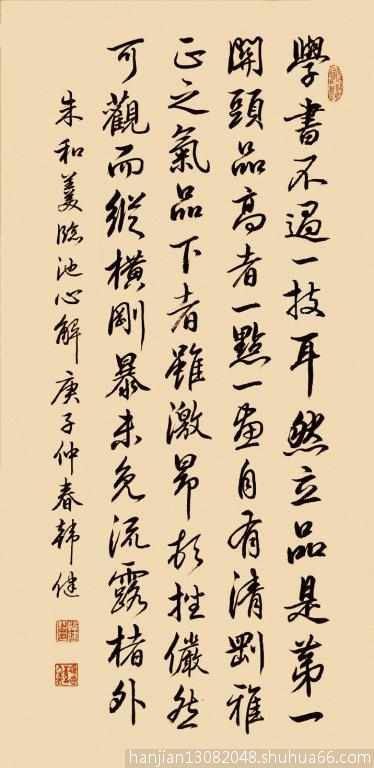 學書不過一技耳然立品是第一
關頭品高者一點一畫自有清剛雅
正之氣品下者雖激昂頓挫儼然
可觀而縱橫剛暴未免流露楮外
朱和羹臨池心解 庚子仲春韩健
hanjian13082048.shuhua66.com